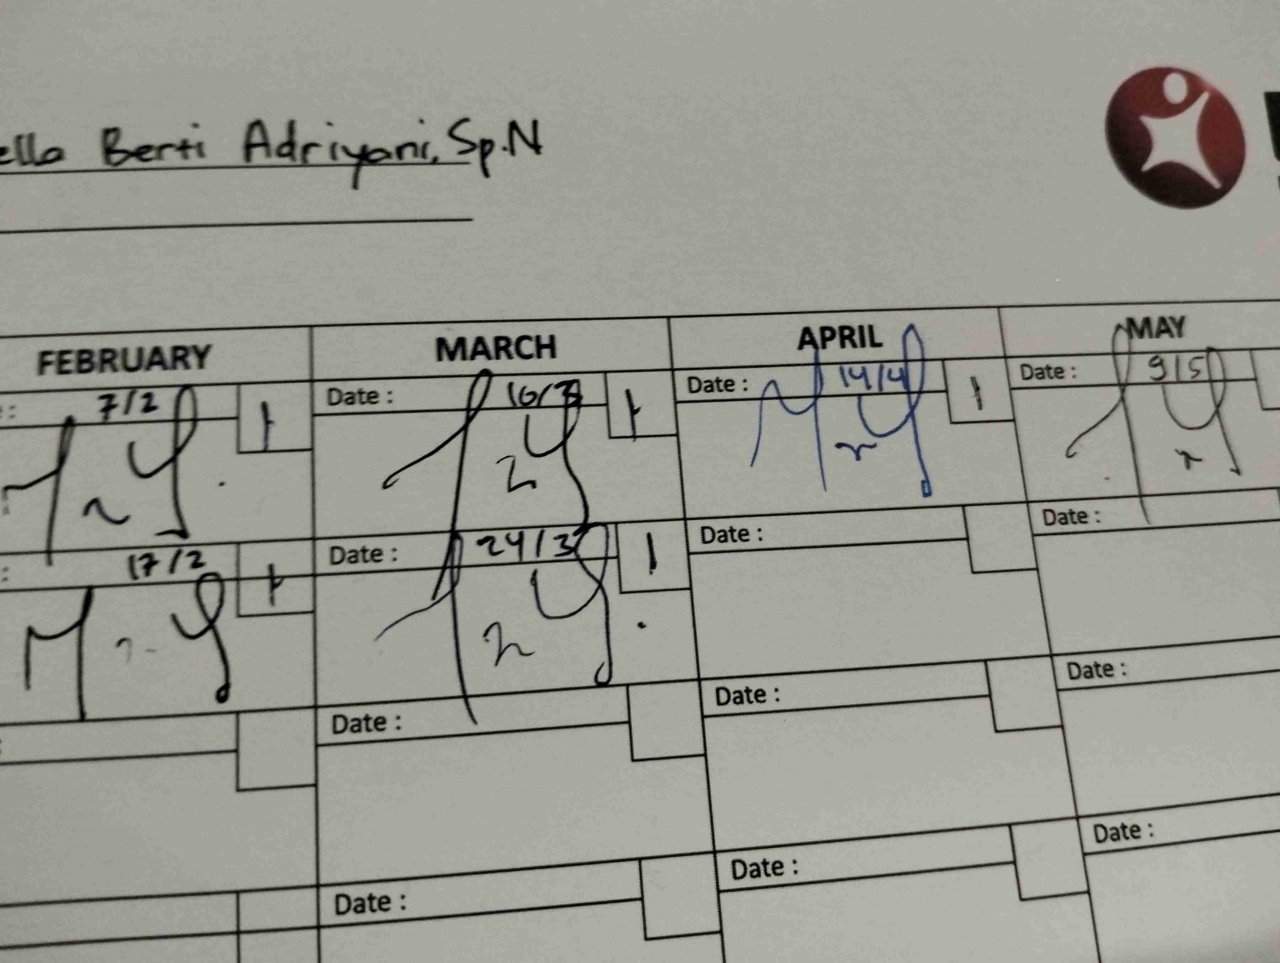 Berti Adriyani, Sp.N
FEBRUARY MARCH APRIL MAY
7/2 1 Date : 16/3 1 Date : 14/4 1 Date : 9/5
17/2 1 Date : 24/3 1 Date : Date :
Date : Date : Date :
Date : Date : Date :